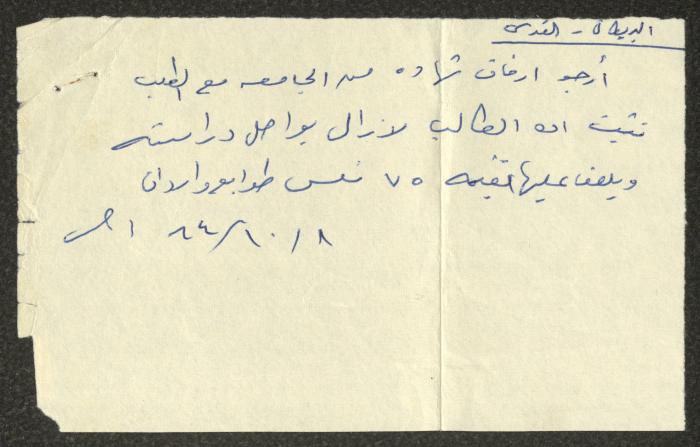 البريطان - القدس
أرجو ارفاق شهاده من الجامعه مع الطلب
تثبت ان الطالب لا زال يواصل دراسته
ويلصق عليها بقيمه ٧٥ فلس طوابع واردات
٦٤/١٠/٨